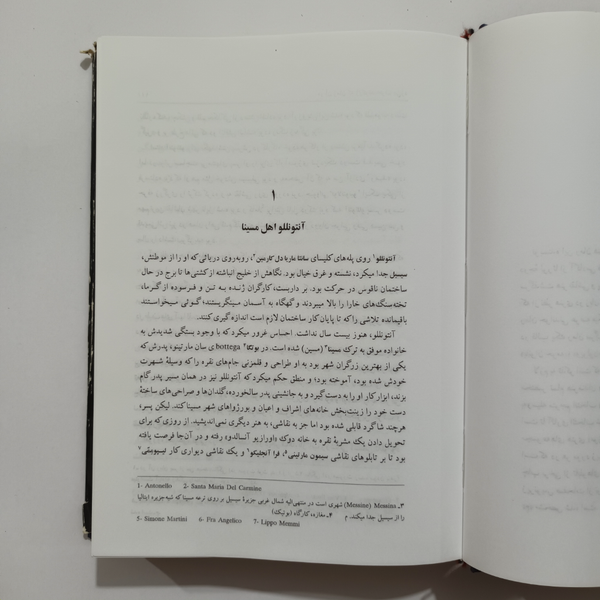 ۱
آنتونللو اهل مسینا
آنتونللو۱ روی پله‌های کلیسای سانتا ماریا دل کارمین۲، روبه‌روی دریائی که او را از موطنش،
سیسیل جدا میکرد، نشسته و غرق خیال بود. نگاهش از خلیج انباشته از کشتی‌ها تا برج در حال
ساختمان ناقوس در حرکت بود. بر داربست، کارگران ژنده به تن و فرسوده از گرما،
تخته‌سنگ‌های خارا را بالا میبردند و گهگاه به آسمان مینگریستند، گوئی میخواستند
باقیمانده تلاشی را که تا پایان کار ساختمان لازم است اندازه‌گیری کنند.
آنتونللو، هنوز بیست سال نداشت. احساس غرور میکرد که با وجود بستگی شدیدش به
خانواده موفق به ترک مسینا۳ (مسین) شده است. در بوتگا۴ bottega ی سان مارتینو، پدرش که
یکی از بهترین زرگران شهر بود به او طراحی و قلمزنی جام‌های نقره را که وسیلهٔ شهرت
خودش شده بود، آموخته بود؛ و منطق حکم میکرد که آنتونللو نیز در همان مسیر پدر گام
بزند، ابزار کار او را به دست گیرد و به جانشینی پدر سالخورده، گلدان‌ها و صراحی‌های ساختهٔ
دست خود را زینت‌بخش خانه‌های اشراف و اعیان و بورژواهای شهر مسینا کند. لیکن پسر،
هرچند شاگرد قابلی شده بود اما جز به نقاشی، به هنر دیگری نمی‌اندیشید. از روزی که برای
تحویل دادن یک مشربهٔ نقره به خانه دوک «اورازیو آنسالدو» رفته و در آن‌جا فرصت یافته
بود تا بر تابلوهای نقاشی سیمون مارتینی۵، فرا آنجلیکو۶ و یک نقاشی دیواری کار لیپوممی۷
1- Antonello 2- Santa Maria Del Carmine
۳ـ Messina (Messine) شهری است در منتهی‌الیه شمال غربی جزیرهٔ سیسیل بر روی ترعه مسینا که شبه‌جزیره ایتالیا
را از سیسیل جدا میکند. م ۴ـ مغازه، کارگاه (بوتیک)
5- Simone Martini 6- Fra Angelico 7- Lippo Memmi